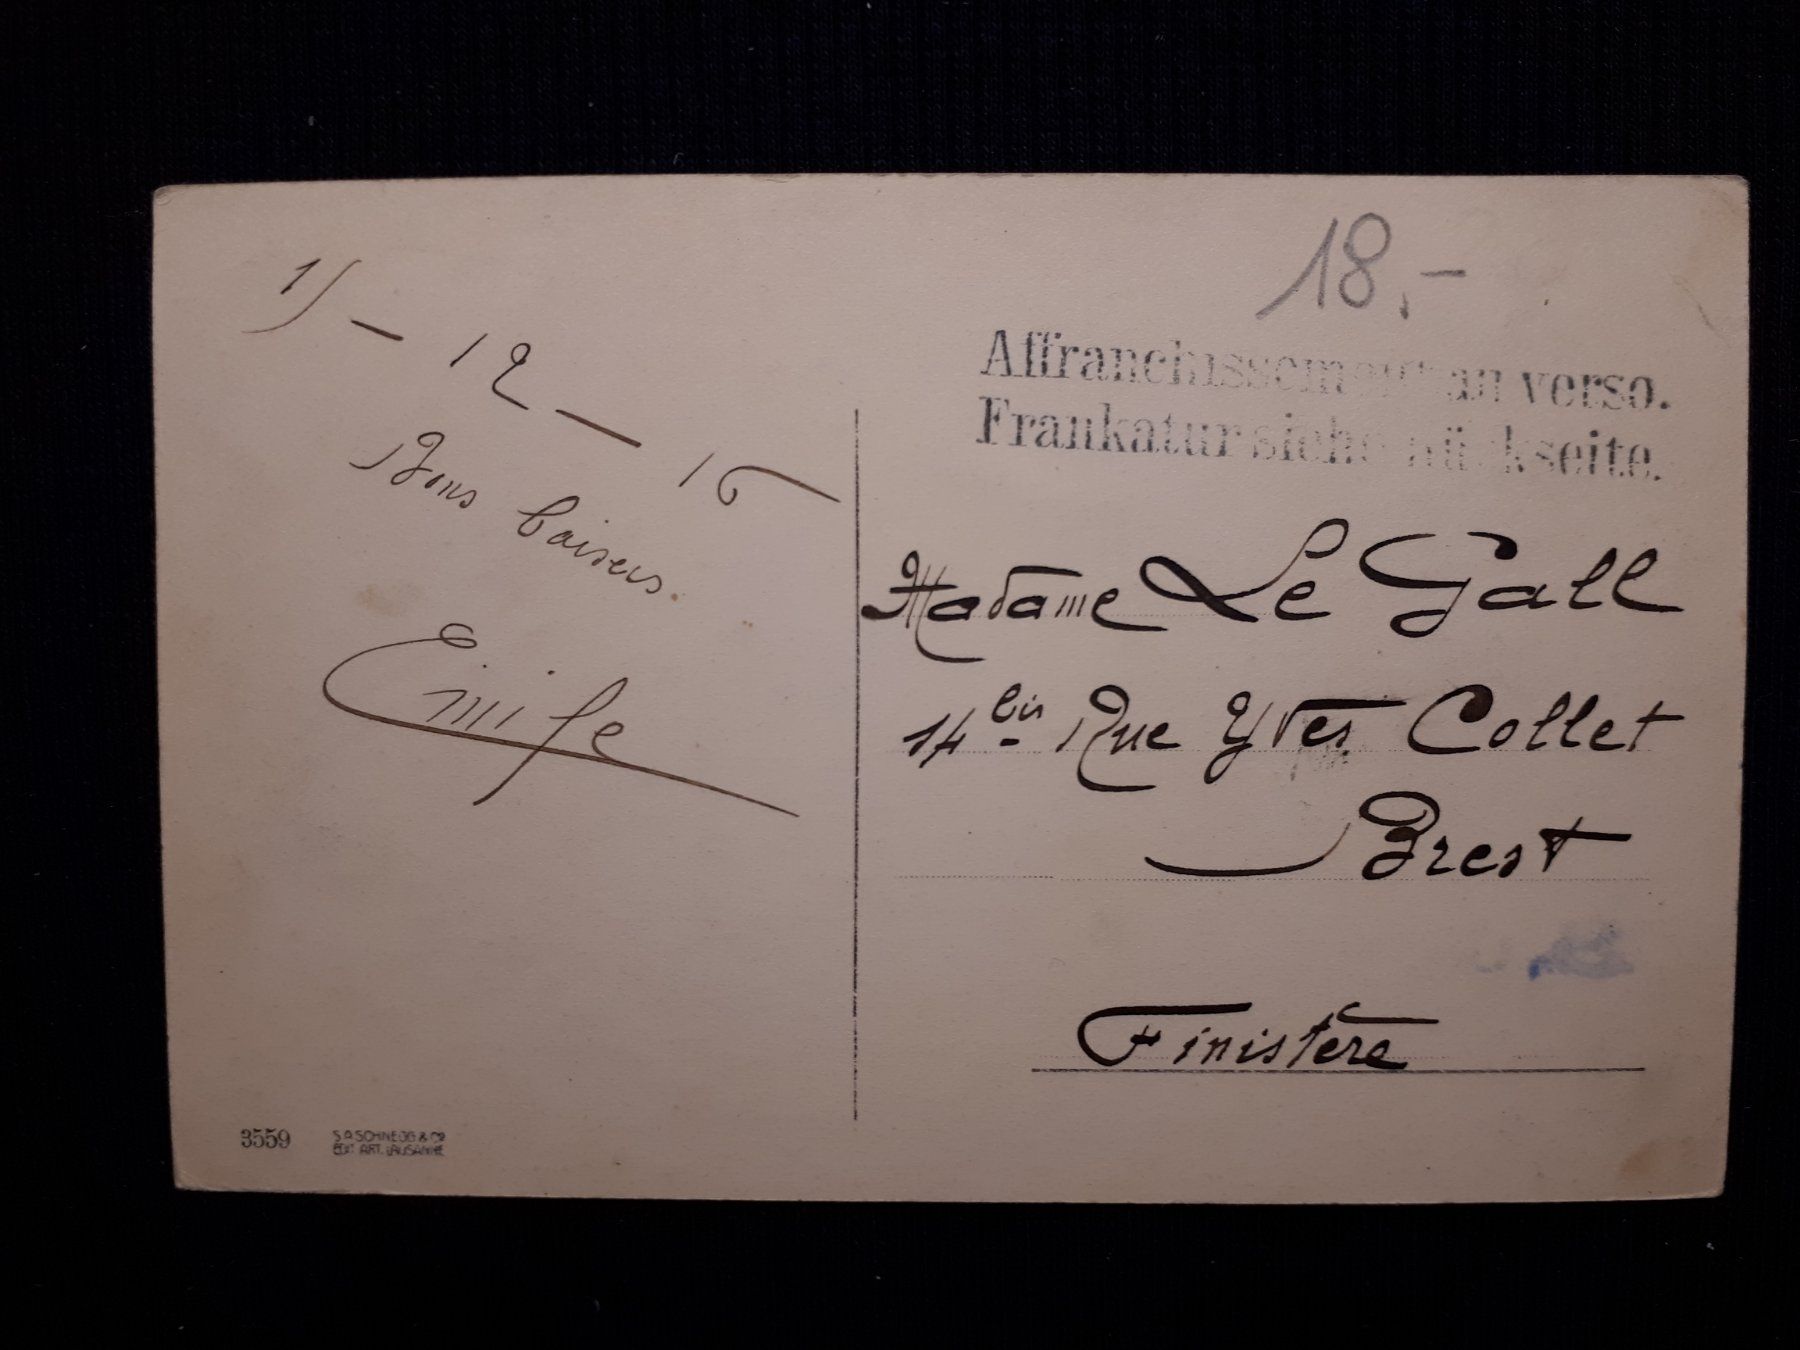 18.-
Affranchissement au verso.
Frankatur siehe Rückseite.
12 - 16
Bons baisers.
Emile
Madame Le Gall
14 bis Rue Yves Collet
Brest
Finistère
3559
S.A. SCHNEGG & Co
EDIT. ART. LAUSANNE